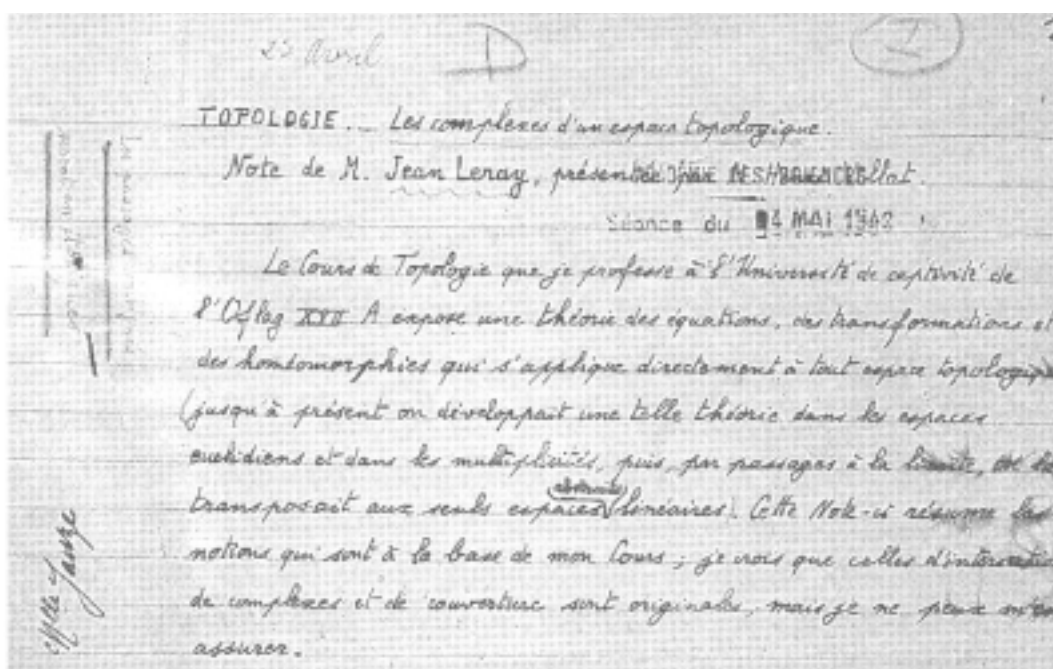 23 Avril D I
TOPOLOGIE. _ Les complexes d'un espace topologique.
Note de M. Jean Leray, présentée par M. Henri Villat.
Séance du 4 MAI 1942
Le Cours de Topologie que je professe à l'Université de captivité de
l'Oflag XVII A expose une théorie des équations, des transformations et
des homéomorphies qui s'applique directement à tout espace topologique
(jusqu'à présent on développait une telle théorie dans les espaces
euclidiens et dans les multiplicités, puis, par passages à la limite, on la
abstraits
transposait aux seuls espaces linéaires). Cette Note-ci résume les
notions qui sont à la base de mon Cours ; je crois que celles d'intersection
de complexes et de couverture sont originales, mais je ne peux m'en
assurer.